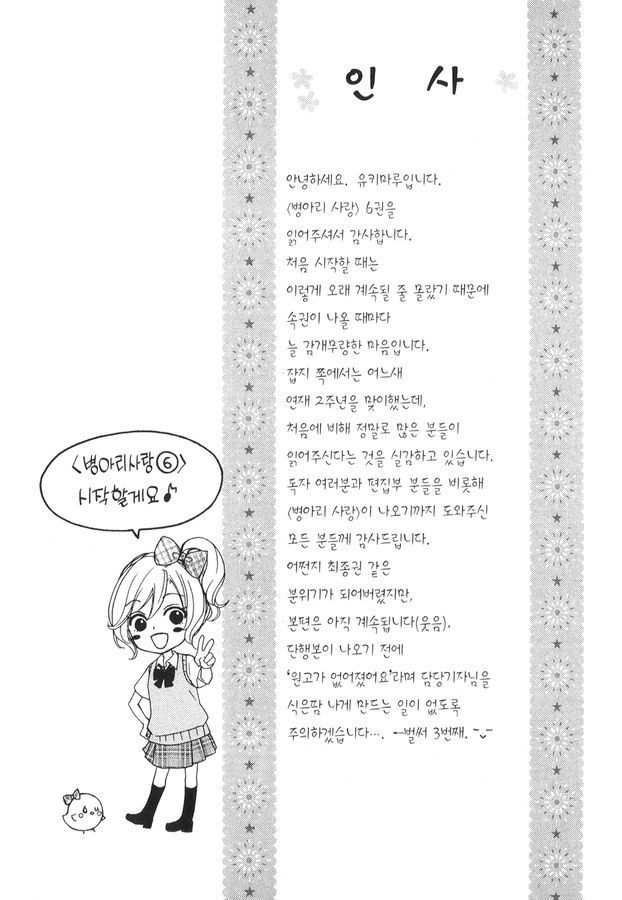 인 사
안녕하세요. 유키마루입니다.
<병아리 사랑> 6권을
읽어주셔서 감사합니다.
처음 시작할 때는
이렇게 오래 계속될 줄 몰랐기 때문에
속권이 나올 때마다
늘 감개무량한 마음입니다.
잡지 쪽에서는 어느새
연재 2주년을 맞이했는데,
처음에 비해 정말로 많은 분들이
읽어주신다는 것을 실감하고 있습니다.
독자 여러분과 편집부 분들을 비롯해
<병아리 사랑>이 나오기까지 도와주신
모든 분들께 감사드립니다.
어쩐지 최종권 같은
분위기가 되어버렸지만,
본편은 아직 계속됩니다(웃음).
단행본이 나오기 전에
'원고가 없어졌어요'라며 담당기자님을
식은땀 나게 만드는 일이 없도록
주의하겠습니다…. ←벌써 3번째.
<병아리사랑⑥>
시작할게요♪